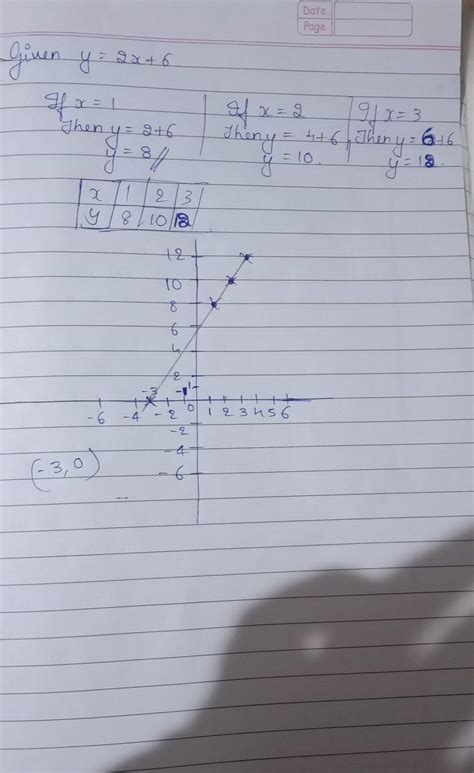 Date
Page
Given y = 2x+6
If x = 1
Then y = 2+6
y = 8 //
If x = 2
Then y = 4+6
y = 10.
If x = 3
Then y = 6+6
y = 12.
x 1 2 3
y 8 10 12
12
10
8
6
4
2
-3 -1
-6 -4 -2 0 1 2 3 4 5 6
-2
-4
-6
(-3,0)